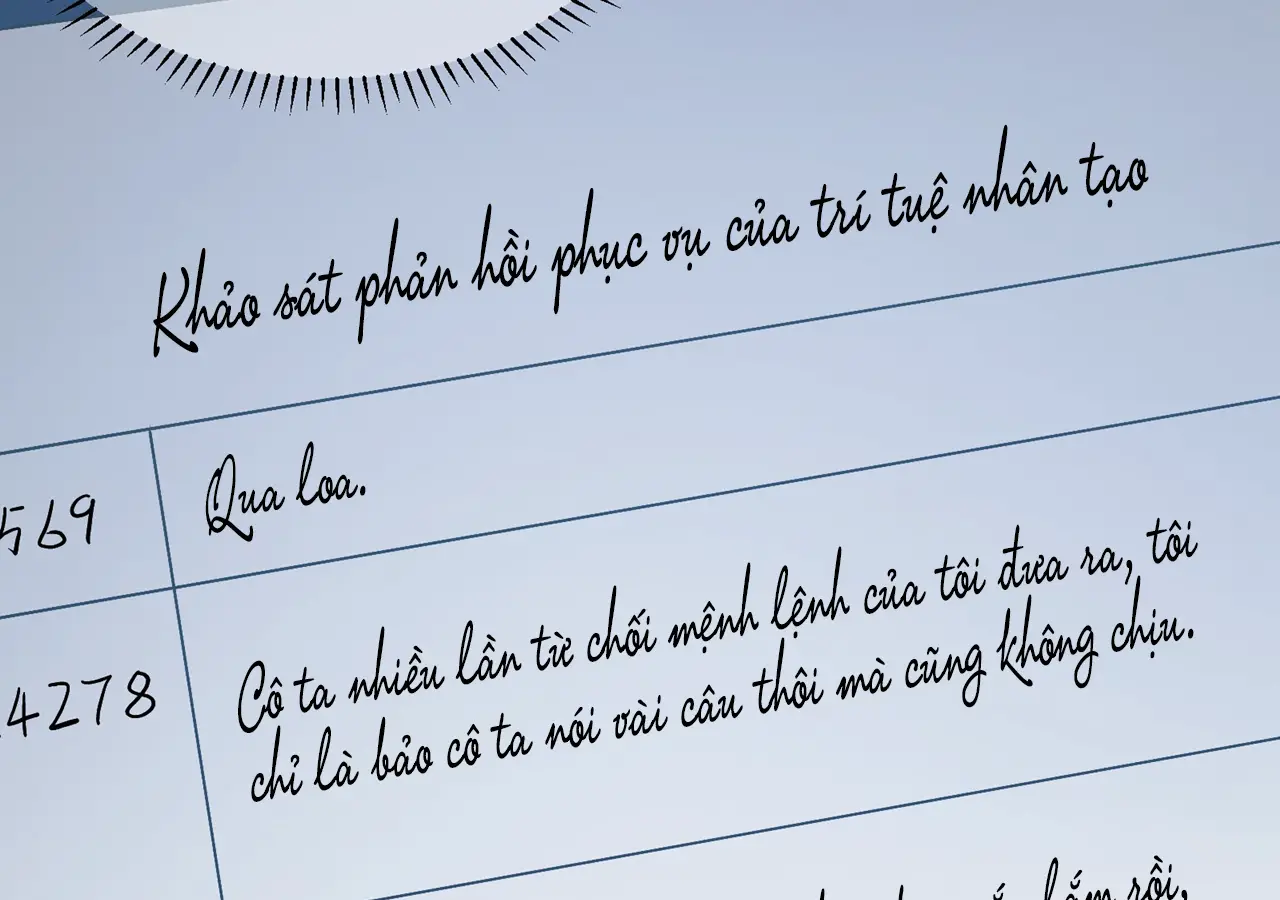 Khảo sát phản hồi phục vụ của trí tuệ nhân tạo
569
Qua loa.
4278
Cô ta nhiều lần từ chối mệnh lệnh của tôi đưa ra, tôi
chỉ là bảo cô ta nói vài câu thôi mà cũng không chịu.
rồi,